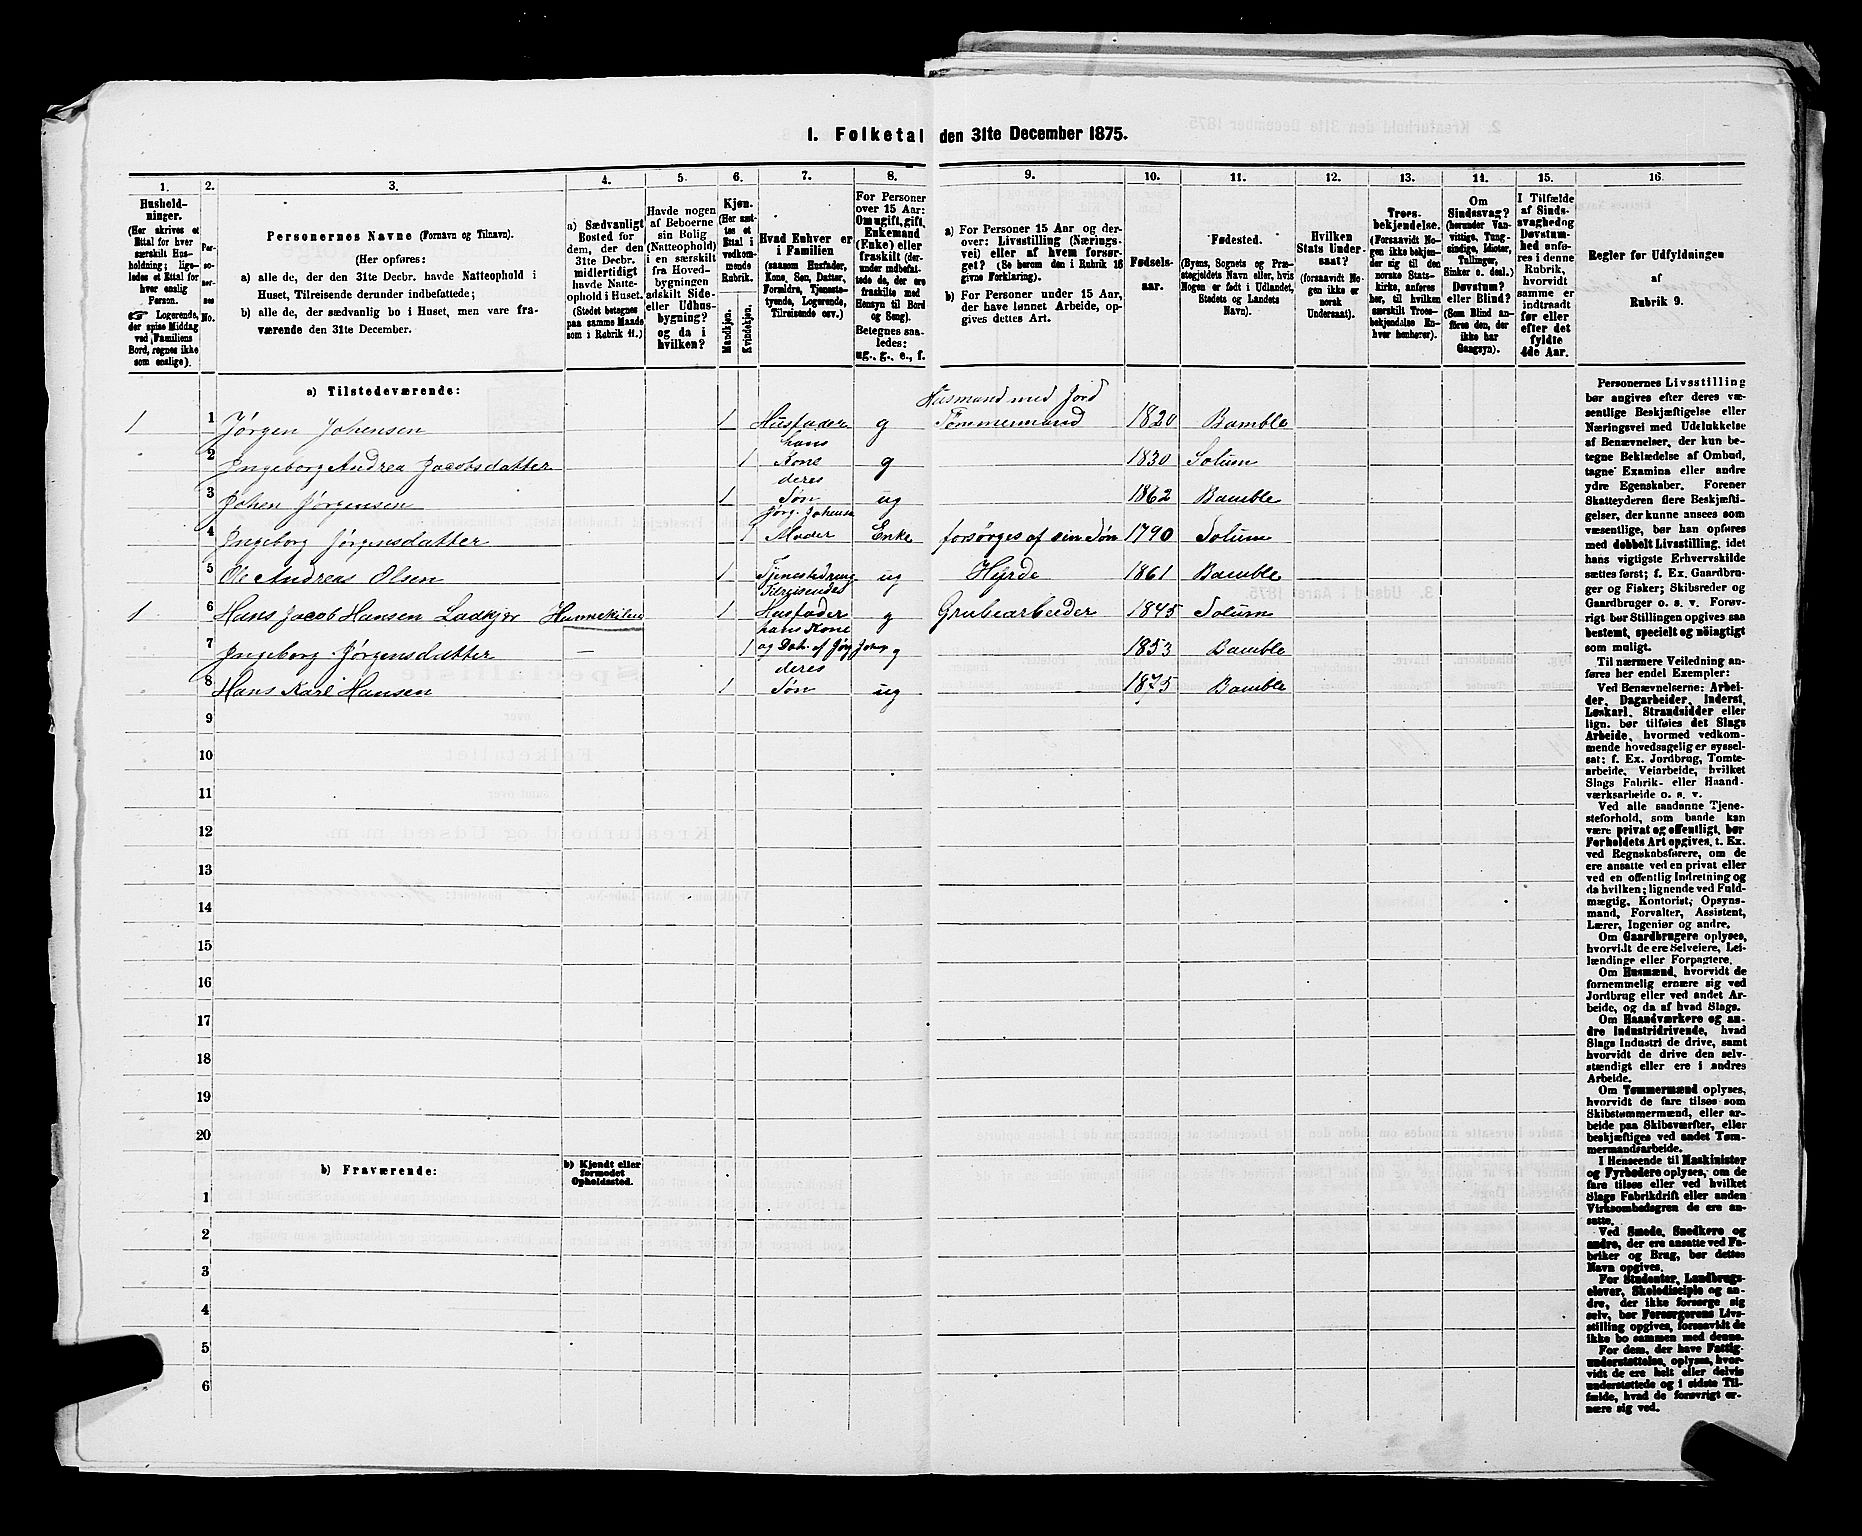 1. Folketal den 31te December 1875.
1. 2. 3. 4. 5. 6. 7. 8. 9. 10. 11. 12. 13. 14. 15. 16.
Hushold-
ninger.
(Her skrives et
Ettal for hver
særskilt Hus-
holdning; lige-
ledes et Ettal for
hver enslig
Person.
☞ Logerende,
der spise Middag
ved Familiens
Bord, regnes ikke
som enslige).
Per-
so-
ner-
nes
No.
Personernes Navne (Fornavn og Tilnavn).
(Her opføres:
a) alle de, der den 31te Decbr. havde Natteophold i
Huset, Tilreisende derunder indbefattede;
b) alle de, der sædvanlig bo i Huset, men vare fra-
værende den 31te December.
a) Sædvanligt
Bosted for
dem, der den
31te Decbr.
midlertidigt
havde Natte-
ophold i Huset.
(Stedet betegnes
paa samme Maade
som i Rubrik 11.)
Havde nogen
af Beboerne
sin Bolig
(Natteophold)
i en særskilt
fra Hoved-
bygningen
adskilt Side-
eller Udhus-
bygning?
og da i
hvilken?
Kjøn.
(Her sæt-
tes et
Ettal i
vedkom-
mende
Rubrik.
Mandkjøn.
Kvindekjøn.
Hvad Enhver er
i Familien
(saasom Husfader,
Kone, Søn, Datter,
Forældre, Tjeneste-
tyende, Logerende,
Tilreisende osv.)
For Personer
over 15 Aar:
Om ugift, gift,
Enkemand
(Enke) eller
fraskilt (der-
under indbefat-
tede de, der ere
fraskilte med
Hensyn til Bord
og Seng).
Betegnes saa-
ledes:
ug., g., e., f.
a) For Personer 15 Aar og der-
over: Livsstilling (Nærings-
vei) eller af hvem forsør-
get? (Se herom den i Rubrik 16
givne Forklaring).
b) For Personer under 15 Aar,
der have lønnet Arbeide, op-
gives dettes Art.
Fødsels-
aar.
Fødested.
(Byens, Sognets og Præ-
stegjeldets Navn eller, hvis
Nogen er født i Udlandet,
Stedets og Landets
Navn).
Hvilken
Stats Under-
saat?
(forsaavidt No-
gen ikke er
norsk
Undersaat).
Troes-
bekjendelse.
(Forsaavidt No-
gen ikke bekjen-
der sig til den
norske Stats-
kirke, anføres
her, til hvilken
særskilt Troes-
bekjendelse En-
hver henhører).
Om
Sindssvag?
(herunder Van-
vittige, Tung-
sindige, Idioter,
Tullinger,
Sinker o. desl.)
Døvstum?
eller Blind?
(Som Blind an-
føres den, der
ikke har
Gangsyn).
I Tilfælde
af Sinds-
svaghed og
Døvstum-
hed anfø-
res i denne
Rubrik,
hvorvidt
samme er
indtraadt
før eller
efter det
fyldte
4de Aar.
Regler før Udfyldningen
af
Rubrik 9.
a) Tilstedeværende:
Husmand med Jord
1 1 Jørgen Johensen 1 Husfader g Tømmermand 1820 Bamble
hans
2 Ingeborg Andrea Jacobsdatter 1 Kone g 1830 Solum
deres
3 Johen Jørgensen 1 Søn ug 1862 Bamble
Jørg. Johensn
4 Ingeborg Jørgensdatter 1 Moder Enke forsørges af sin Søn 1790 Solum
5 Ole Andreas Olsen 1 Tjenestedreng ug Hyrde 1861 Bamble
Tilreisendes
1 6 Hans Jacob Hansen Ladkjør 1 Husfader g Grubearbeider 1845 Solum
hans Kone
7 Ingeborg Jørgensdatter — 1 og Dat. af Jørg. Johns g 1853 Bamble
deres
8 Hans Karl Hansen 1 Søn ug 1875 Bamble
9
10
11
12
13
14
15
16
17
18
19
20
b) Fraværende:
b) Kjendt eller
formodet
Opholdssted.
1
2
3
4
5
6
Personernes Livsstilling
bør angives efter deres væ-
sentlige Beskjæftigelse eller
Næringsvei med Udelukkelse
af Benævnelser, der kun be-
tegne Beklædelse af Ombud,
tagne Examina eller andre
ydre Egenskaber. Forener
Skatteyderen flere Beskjæfti-
gelser, der kunne ansees som
væsentlige, bør han opføres
med dobbelt Livsstilling, idet
hans vigtigste Erhvervskilde
sættes først; f. Ex. Gaardbru-
ger og Fisker; Skibsreder og
Gaardbruger o. s. v. Forøv-
rigt bør Stillingen opgives saa
bestemt, specielt og nøiagtigt
som muligt.
Til nærmere Veiledning an-
føres her endel Exempler:
Ved Benævnelserne: Arbei-
der, Dagarbeider, Inderst,
Løskarl, Strandsidder eller
lign. bør tilføies det Slags
Arbeide, hvormed vedkom-
mende hovedsagelig er syssel-
sat: f. Ex. Jordbrug, Tomte-
arbeide, Veiarbeide, hvilket
Slags Fabrik- eller Haand-
værksarbeide o. s. v.
Ved alle saadanne Tjene-
steforhold, som baade kan
være privat og offentligt, bør
Forholdets Art opgives, t. Ex.
ved Regnskabsførere, om de
ere ansatte ved en privat eller
ved en offentlig Indretning og
da hvilken; lignende ved Fuld-
mægtig, Kontorist, Opsyns-
mand, Forvalter, Assistent,
Lærer, Ingeniør og andre.
Om Gaardbrugere oplyses,
hvorvidt de ere Selveiere, Lei-
lændinge eller Forpagtere.
Om Husmænd, hvorvidt de
fornemmelig ernære sig ved
Jordbrug eller ved andet Ar-
beide, og da af hvad Slags.
Om Haandværkere og an-
dre Industridrivende, hvad
Slags Industri de drive, samt
hvorvidt de drive den selv-
stændigt eller ere i andres
Arbeide.
Om Tømmermænd oplyses,
hvorvidt de fare tilsøs som
Skibstømmermænd, eller ar-
beide paa Skibsværfter, eller
beskjæftiges ved andet Tøm-
mermandsarbeide.
I Henseende til Maskinister
og Fyrbødere oplyses, om de
fare tilsøs eller ved hvilket
Slags Fabrikdrift eller anden
Virksombedsgren de ere an-
satte.
Ved Smede, Snedkere og
andre, der ere ansatte ved Fa-
briker og Brug, bør dettes
Navn opgives.
For Studenter, Landbrugs-
elever, Skoledisciple og an-
dre, der ikke forsørge sig
selv, bør Forsørgerens Livs-
stilling opgives, forsaavidt de
ikke bo sammen med denne.
For dem, der have Fattig-
understøttelse, oplyses, hvor-
vidt de ere helt eller delvis
understøttede og i sidste Til-
fælde, hvad de forøvrigt er-
nære sig ved.